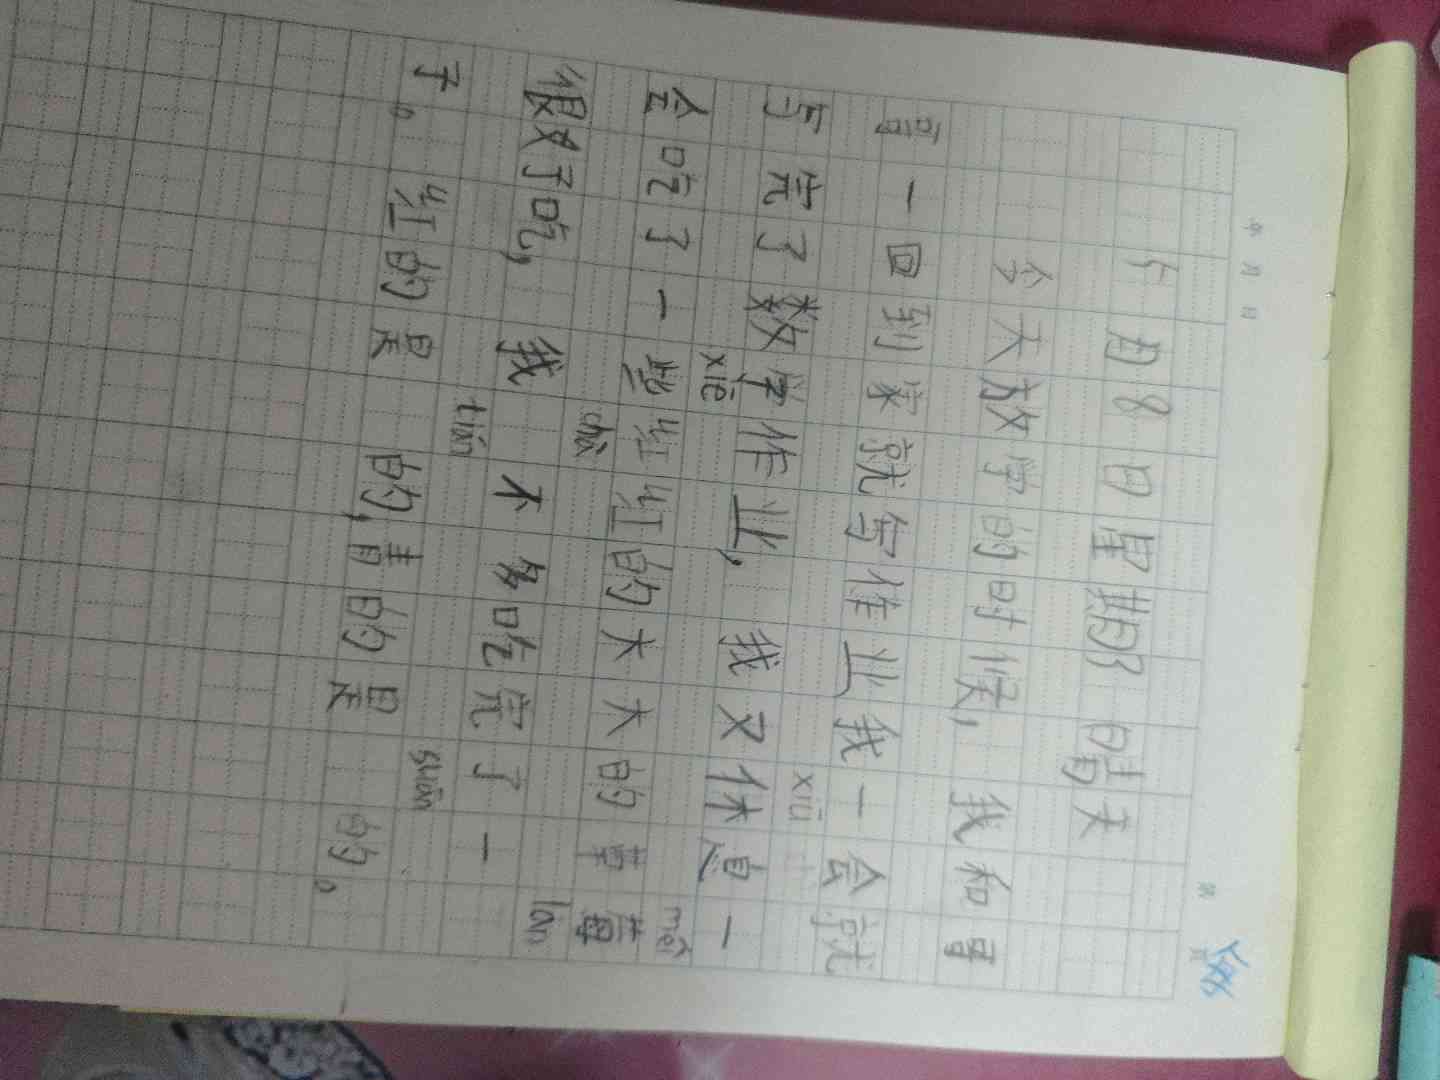 年 月 日 第 页
5月8日星期3 晴天
今天放学的时候,我和哥
哥一回到家就写作业我一会就
xiū
写完了数学作业,我又休息一
xiē méi
会吃了一些红红的大大的草莓
chà lán
很好吃,我 不多吃完了一
tián suān
子。红的是 的,青的是 的。